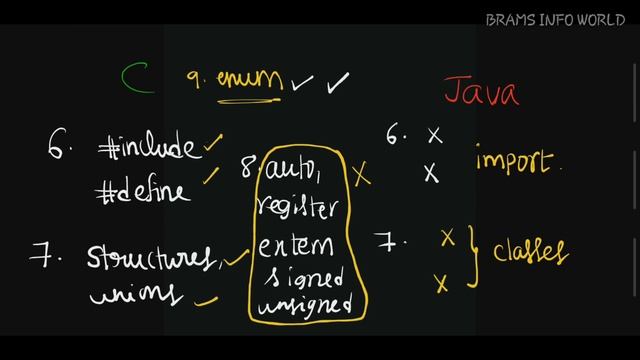 BRAMS INFO WORLD
C
9. enum ✓ ✓
Java
6. #include ✓
#define ✓
8. auto, X
register
extern
signed
unsigned
6. X
X
import.
7. structures, ✓
unions ✓
7. X
X
classes